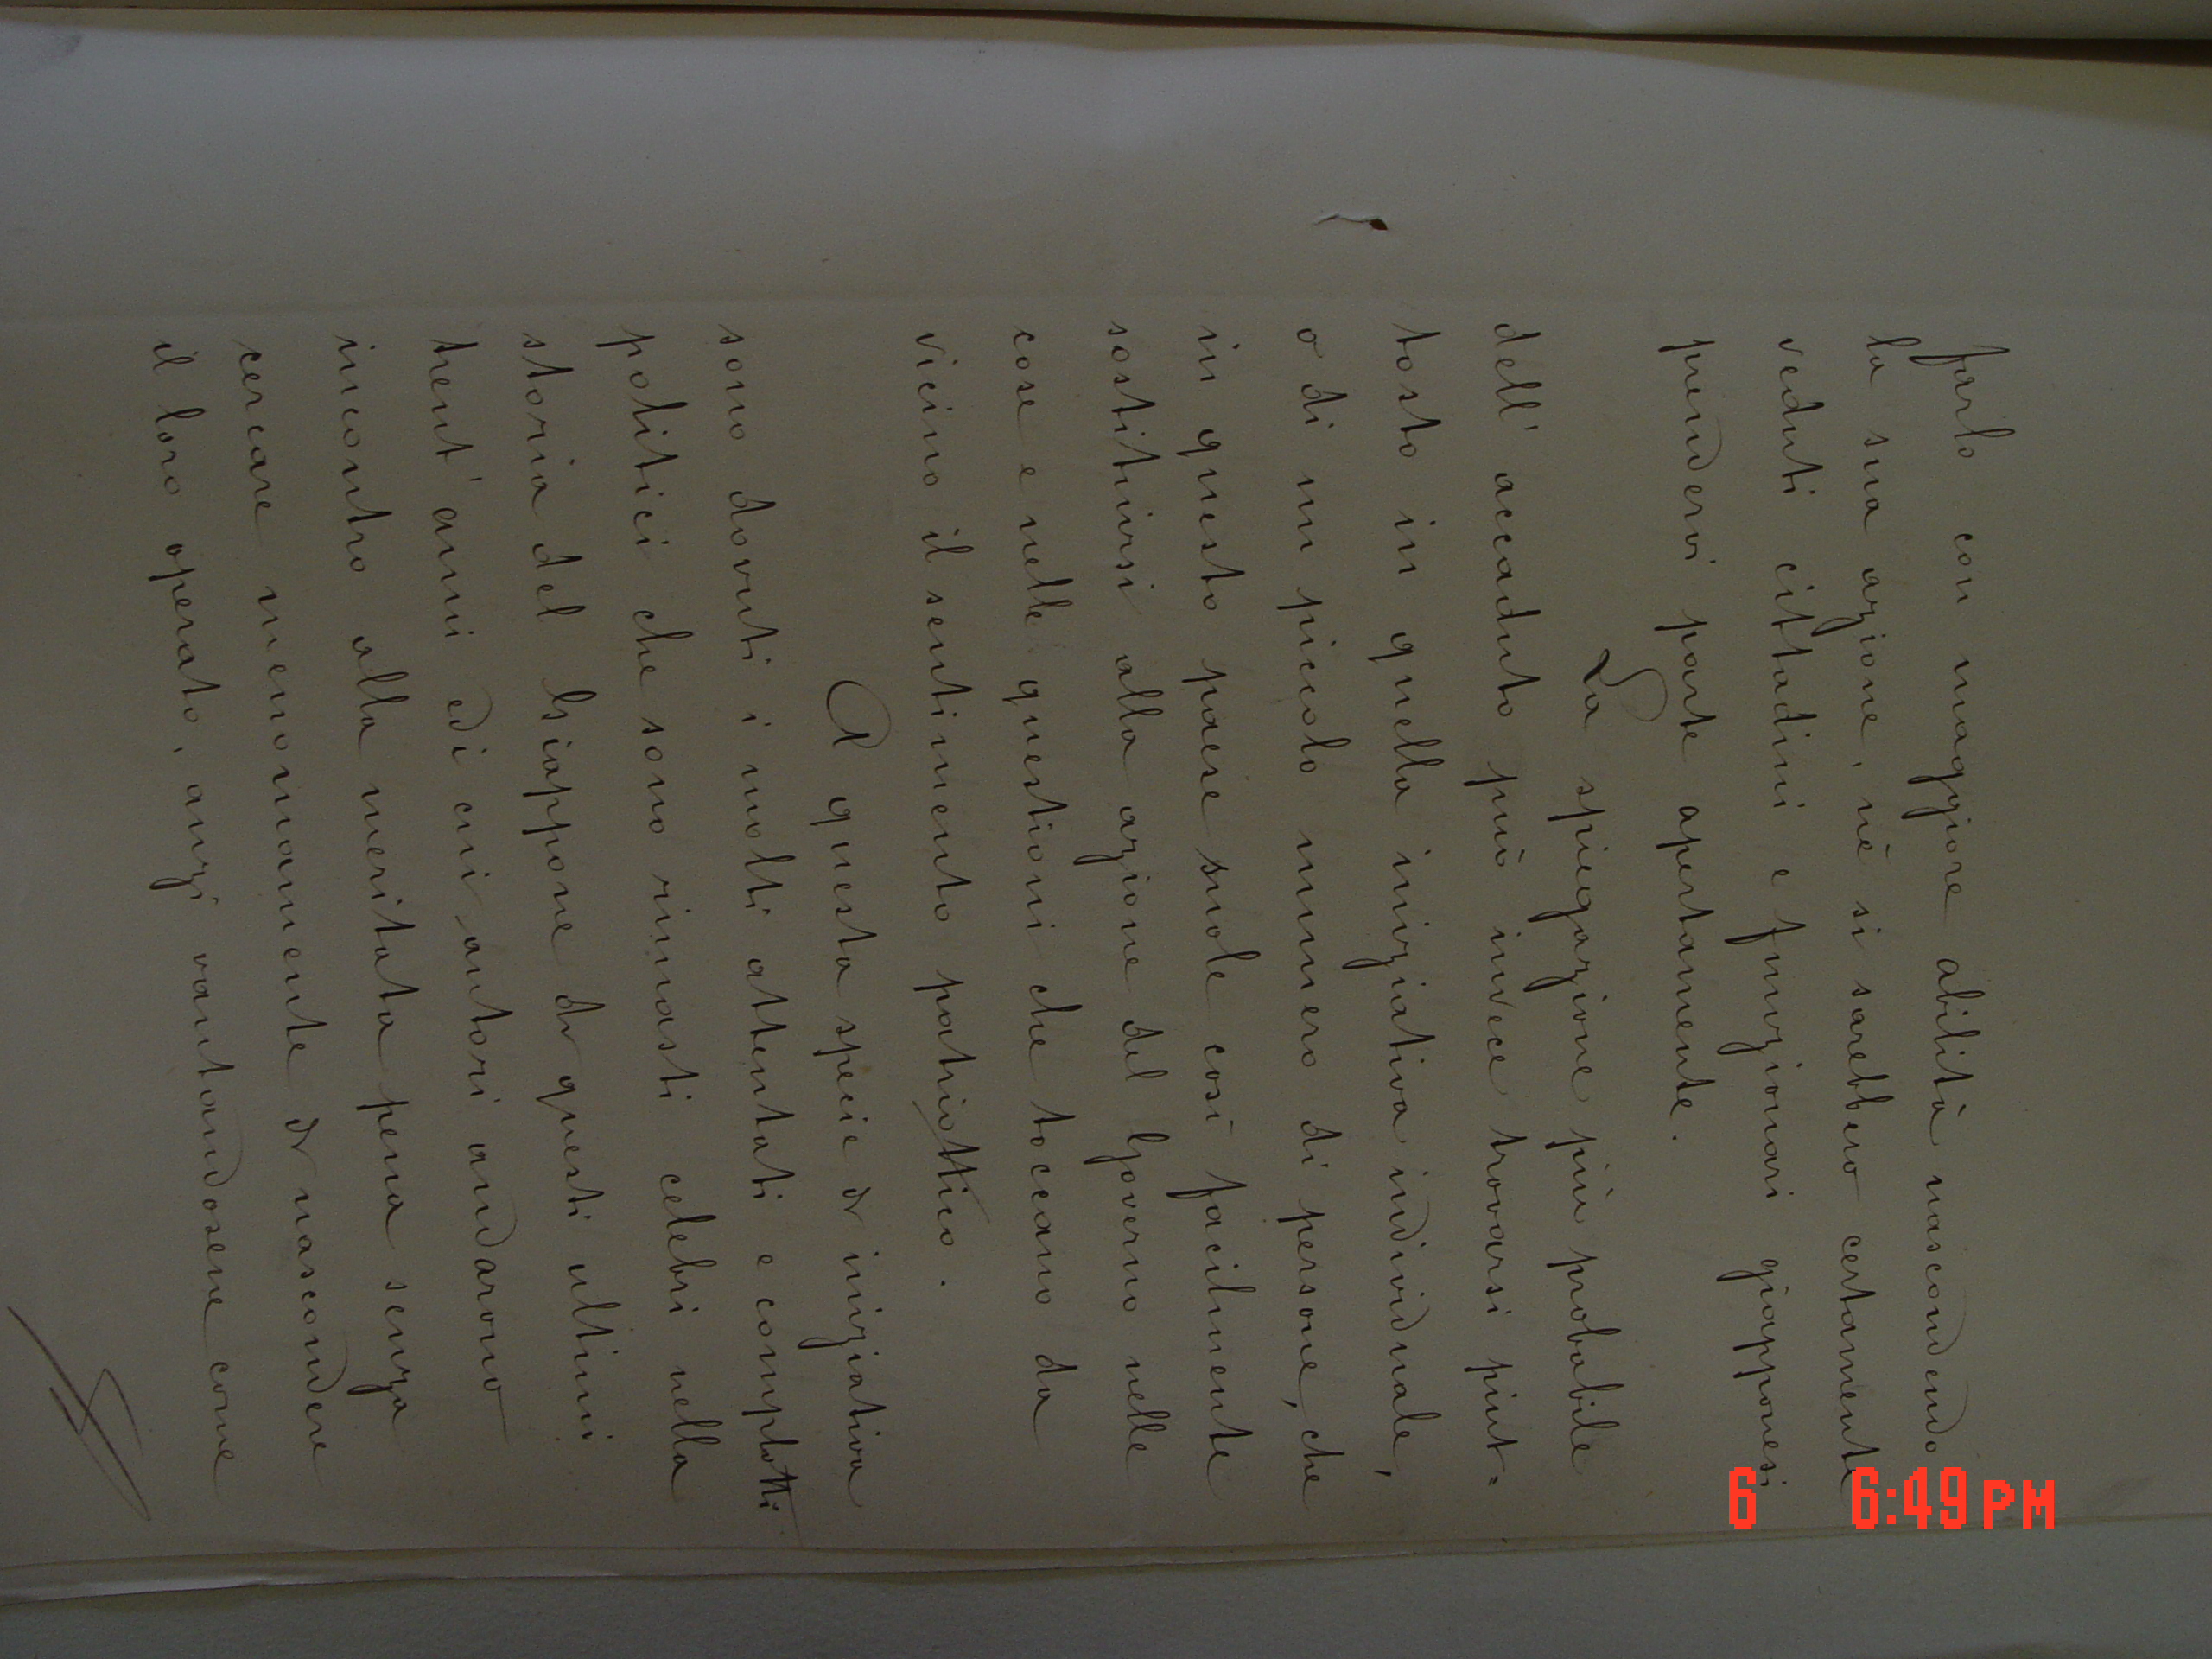 farlo con maggiore abilità nascondendo
la sua azione, nè si sarebbero certamente
veduti cittadini e funzionari giapponesi
prendervi parte apertamente.
La spiegazione più probabile
dell'accaduto può invece trovarsi piut=
tosto in quella iniziativa individuale,
o di un piccolo numero di persone, che
in questo paese suole così facilmente
sostituirsi alla azione del Governo nelle
cose e nelle questioni che toccano da
vicino il sentimento patriottico.
A questa specie di iniziativa
sono dovuti i molti attentati e complotti
politici che sono rimasti celebri nella
storia del Giappone di questi ultimi
trent'anni ed i cui autori andarono
incontro alla meritata pena senza
cercare menomamente di nascondere
il loro operato, anzi vantandosene come
6 6:49 PM